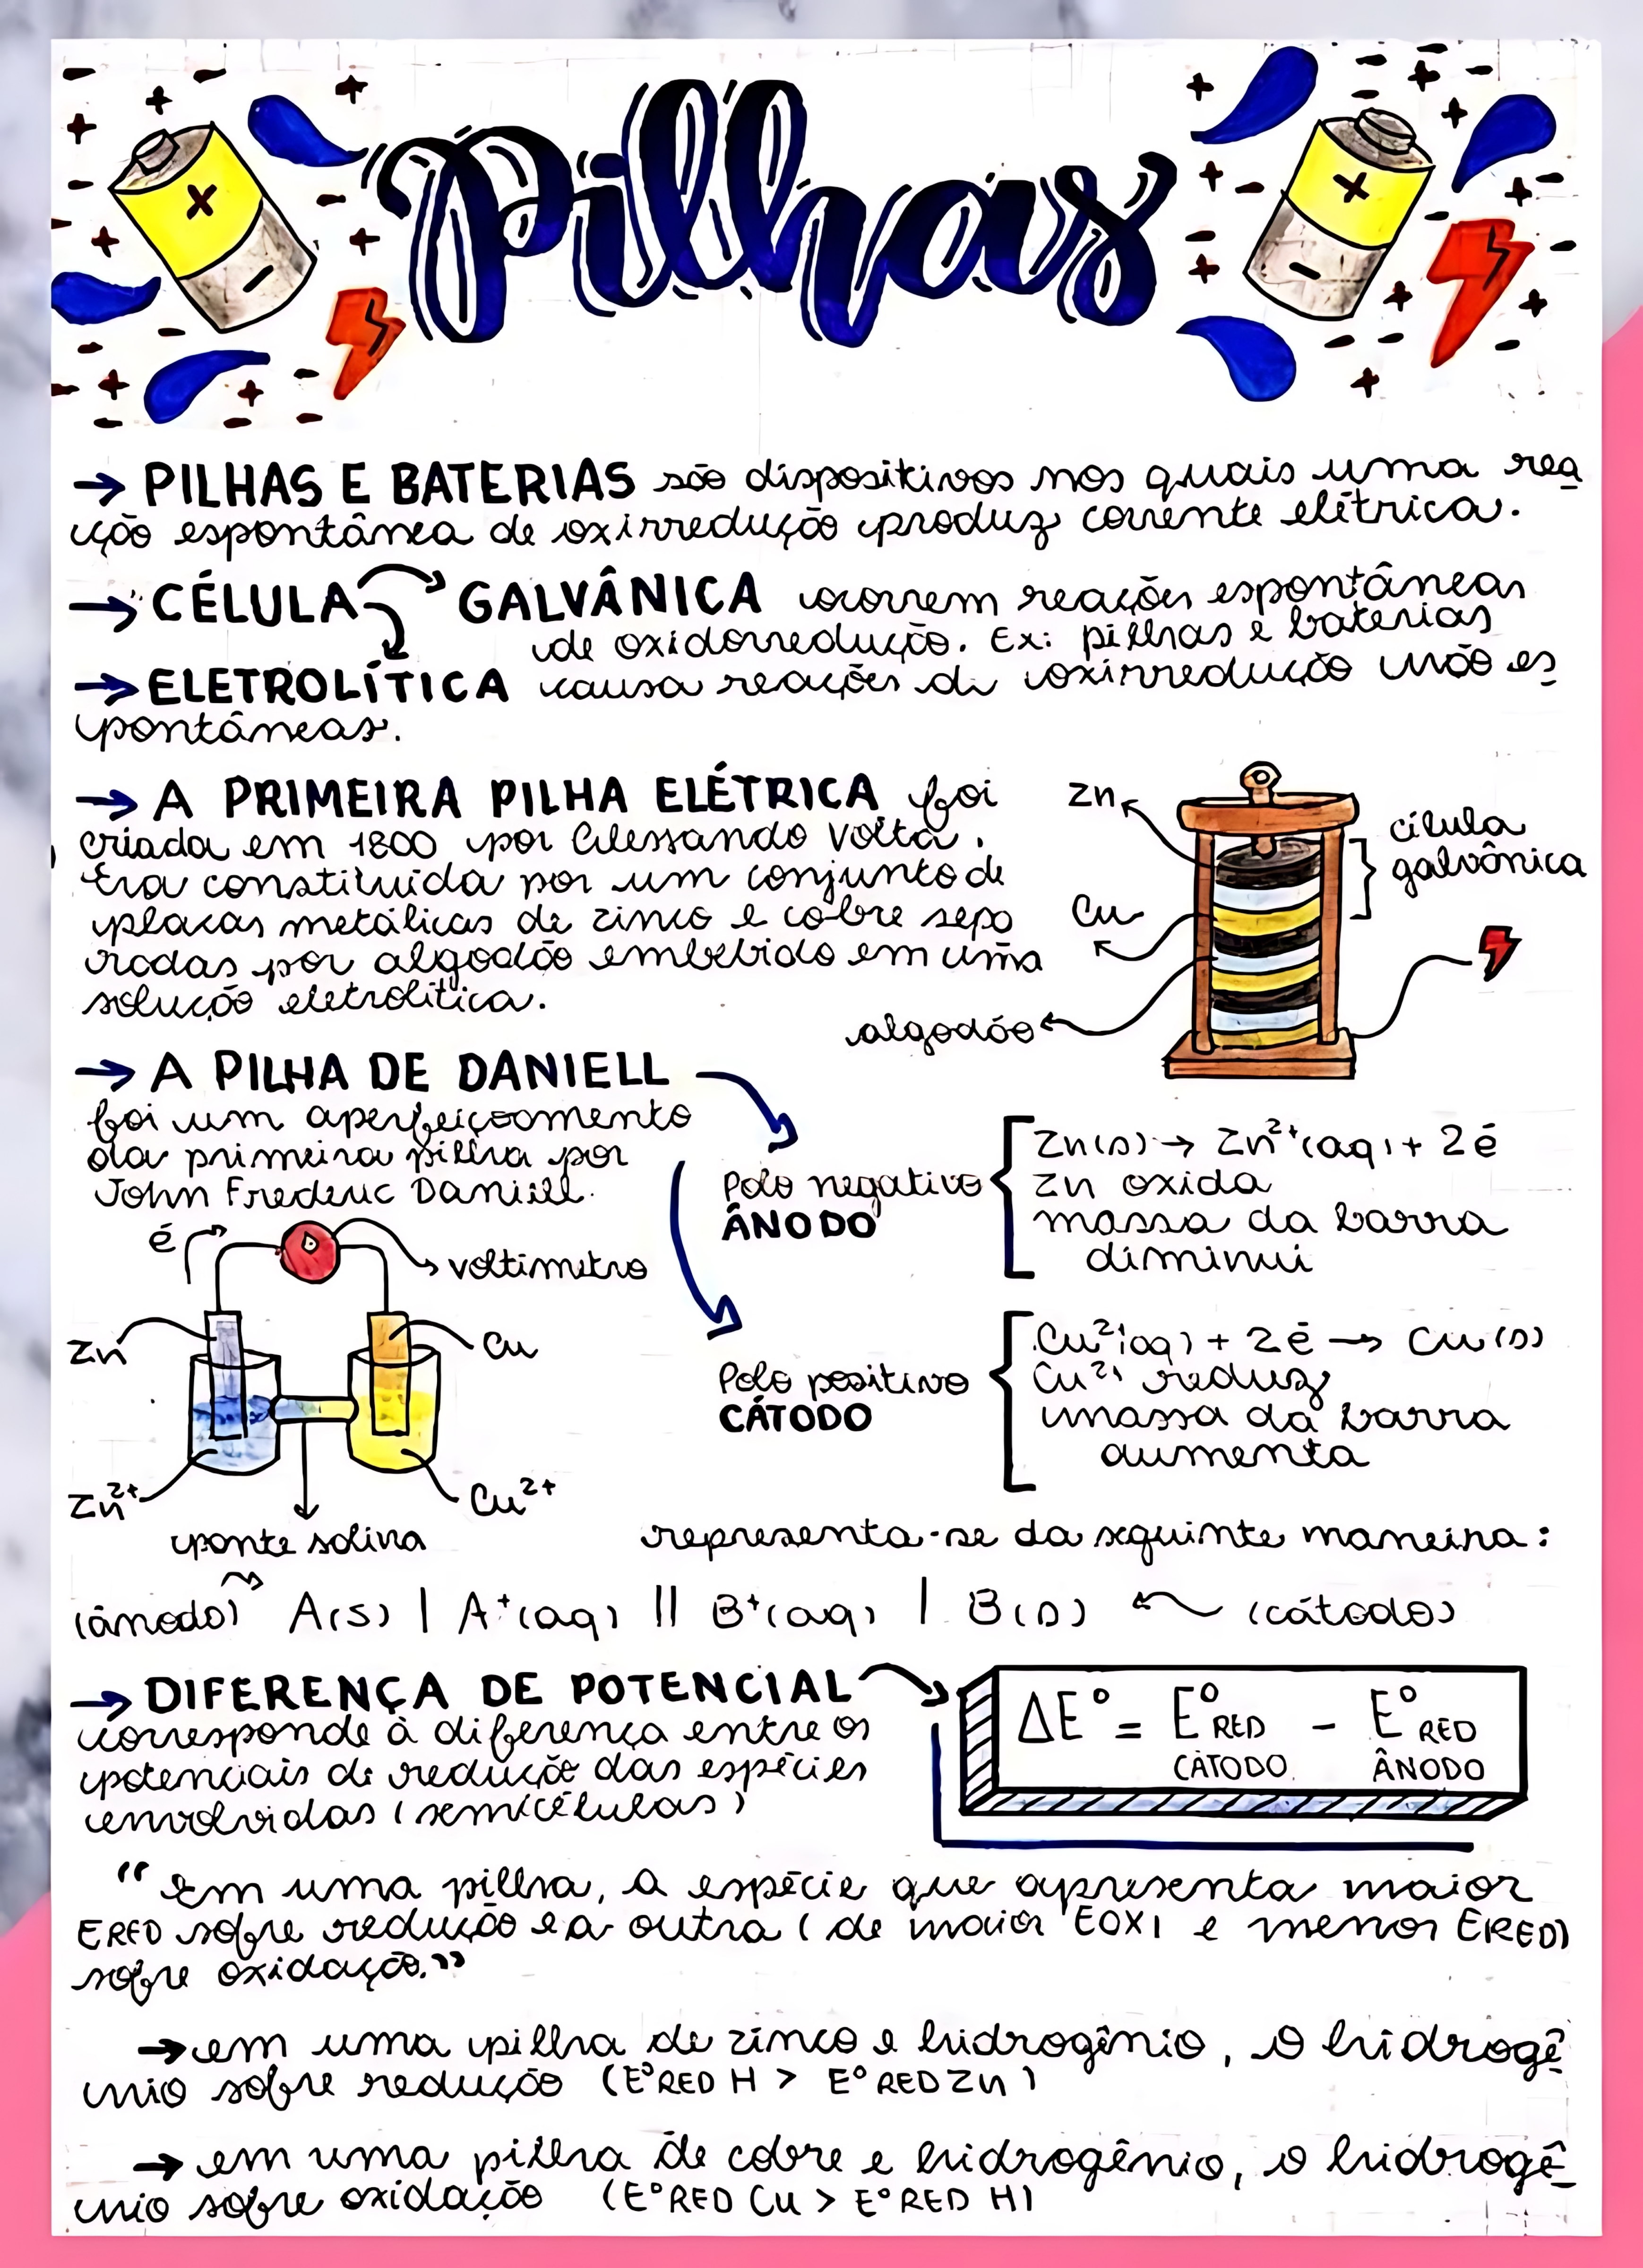 Pilhas
→ PILHAS E BATERIAS são dispositivos nos quais uma rea
ção espontânea de oxirredução produz corrente elétrica.
→ CÉLULA GALVÂNICA ocorrem reações espontâneas
de oxidorredução. Ex: pilhas e baterias
→ ELETROLÍTICA causa reações de oxirredução não es
pontâneas.
→ A PRIMEIRA PILHA ELÉTRICA foi
criada em 1800 por Alessando Volta.
Era constituída por um conjunto de
placas metálicas de zinco e cobre sepa
radas por algodão embebido em uma
solução eletrolítica.
Zn
célula
galvânica
Cu
algodão
→ A PILHA DE DANIELL
foi um aperfeiçoamento
da primeira pilha por
John Frederic Daniell.
Polo negativo
ÂNODO
Zn(s) → Zn²⁺(aq) + 2é
Zn oxida
massa da barra
diminui
Polo positivo
CÁTODO
Cu²⁺(aq) + 2é → Cu(s)
Cu²⁺ reduz
massa da barra
aumenta
é
voltímetro
Zn
Cu
Zn²⁺
Cu²⁺
ponte salina
representa-se da seguinte maneira:
(ânodo) A(s) | A⁺(aq) || B⁺(aq) | B(s) (cátodo)
→ DIFERENÇA DE POTENCIAL
corresponde à diferença entre os
potenciais de redução das espécies
envolvidas (semicélulas)
ΔE° = E° RED - E° RED
CÁTODO ÂNODO
"Em uma pilha, a espécie que apresenta maior
ERED sofre redução e a outra (de maior EOX) e menor ERED)
sofre oxidação."
→ em uma pilha de zinco e hidrogênio, o hidrogê
nio sofre redução (E°RED H > E°RED Zn)
→ em uma pilha de cobre e hidrogênio, o hidrogê
nio sofre oxidação (E°RED Cu > E°RED H)